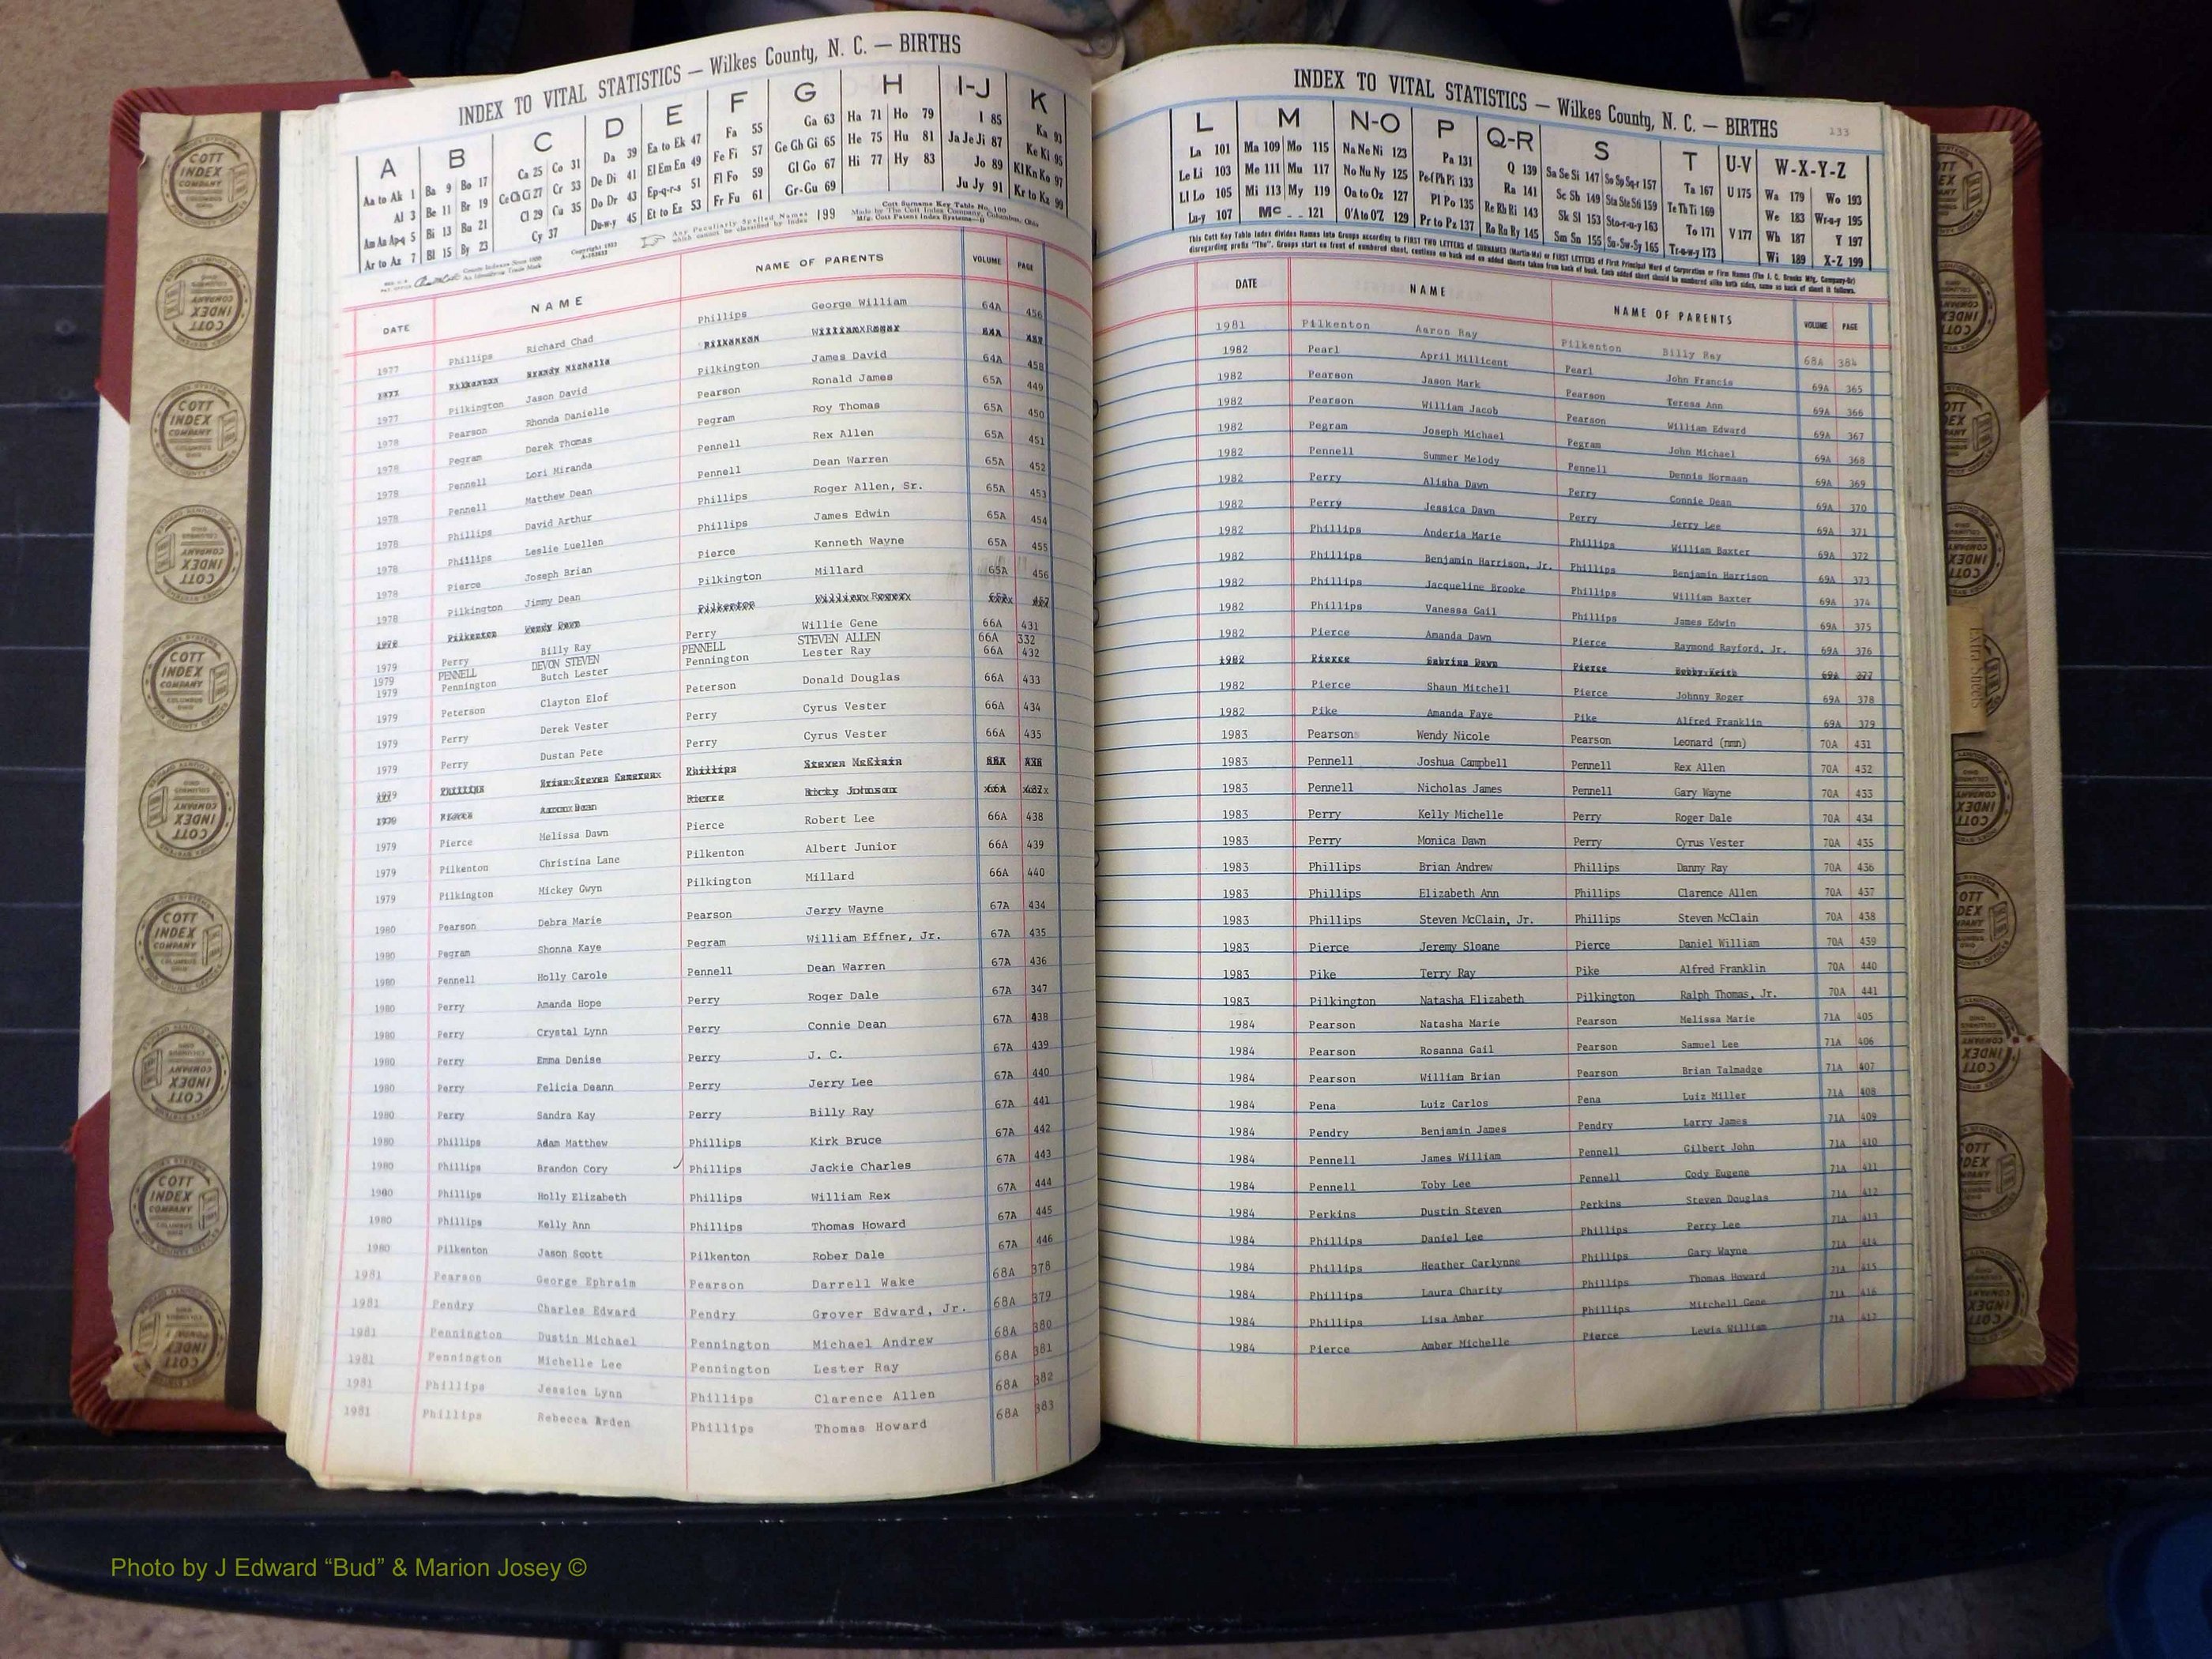 INDEX TO VITAL STATISTICS — Wilkes County, N. C. — BIRTHS
A B C D E F G H I-J K
Aa to Ak 1 Ba 9 Bo 17 Ca 25 Co 31 Da 39 Ea to Ek 47 Fa 55 Ga 63 Ha 71 Ho 79 I 85 Ka 93
Al 3 Be 11 Br 19 Ce Ch Ci 27 Cr 33 De Di 41 El Em En 49 Fe Fi 57 Ge Gh Gi 65 He 75 Hu 81 Ja Je Ji 87 Ke Ki 95
Am An Ap-q 5 Bi 13 Bu 21 Cl 29 Cu 35 Do Dr 43 Ep-q-r-s 51 Fl Fo 59 Gl Go 67 Hi 77 Hy 83 Jo 89 Kl Kn Ko 97
Ar to Az 7 Bl 15 By 23 Cy 37 Du-w-y 45 Et to Ez 53 Fr Fu 61 Gr-Gu 69 Ju Jy 91 Kr to Kz 99
Any Peculiarly Spelled Names which cannot be classified by index 199
Cott Surname Key Table No. 100
Made by The Cott Index Company, Columbus, Ohio
DATE NAME NAME OF PARENTS VOLUME PAGE
1977 Phillips Richard Chad Phillips George William 64A 456
1977 Pilkington Jason David Pilkington James David 64A 458
1978 Pearson Rhonda Danielle Pearson Ronald James 65A 449
1978 Pegram Derek Thomas Pegram Roy Thomas 65A 450
1978 Pennell Lori Miranda Pennell Rex Allen 65A 451
1978 Pennell Matthew Dean Pennell Dean Warren 65A 452
1978 Phillips David Arthur Phillips Roger Allen, Sr. 65A 453
1978 Phillips Leslie Luellen Phillips James Edwin 65A 454
1978 Pierce Joseph Brian Pierce Kenneth Wayne 65A 455
1978 Pilkington Jimmy Dean Pilkington Millard 65A 456
1979 Perry Billy Ray Perry Willie Gene 66A 431
1979 PENNELL DEVON STEVEN PENNELL STEVEN ALLEN 66A 332
1979 Pennington Butch Lester Pennington Lester Ray 66A 432
1979 Peterson Clayton Elof Peterson Donald Douglas 66A 433
1979 Perry Derek Vester Perry Cyrus Vester 66A 434
1979 Perry Dustan Pete Perry Cyrus Vester 66A 435
1979 Pierce Melissa Dawn Pierce Robert Lee 66A 438
1979 Pilkenton Christina Lane Pilkenton Albert Junior 66A 439
1979 Pilkington Mickey Gwyn Pilkington Millard 66A 440
1980 Pearson Debra Marie Pearson Jerry Wayne 67A 434
1980 Pegram Shonna Kaye Pegram William Effner, Jr. 67A 435
1980 Pennell Holly Carole Pennell Dean Warren 67A 436
1980 Perry Amanda Hope Perry Roger Dale 67A 347
1980 Perry Crystal Lynn Perry Connie Dean 67A 438
1980 Perry Emma Denise Perry J. C. 67A 439
1980 Perry Felicia Deann Perry Jerry Lee 67A 440
1980 Perry Sandra Kay Perry Billy Ray 67A 441
1980 Phillips Adam Matthew Phillips Kirk Bruce 67A 442
1980 Phillips Brandon Cory Phillips Jackie Charles 67A 443
1980 Phillips Holly Elizabeth Phillips William Rex 67A 444
1980 Phillips Kelly Ann Phillips Thomas Howard 67A 445
1980 Pilkenton Jason Scott Pilkenton Rober Dale 67A 446
1981 Pearson George Ephraim Pearson Darrell Wake 68A 378
1981 Pendry Charles Edward Pendry Grover Edward, Jr. 68A 379
1981 Pennington Dustin Michael Pennington Michael Andrew 68A 380
1981 Pennington Michelle Lee Pennington Lester Ray 68A 381
1981 Phillips Jessica Lynn Phillips Clarence Allen 68A 382
1981 Phillips Rebecca Arden Phillips Thomas Howard 68A 383
INDEX TO VITAL STATISTICS — Wilkes County, N. C. — BIRTHS 133
L M N-O P Q-R S T U-V W-X-Y-Z
La 101 Ma 109 Mo 115 Na Ne Ni 123 Pa 131 Q 139 Sa Se Si 147 So Sp Sq-r 157 Ta 167 U 175 Wa 179 Wo 193
Le Li 103 Me 111 Mu 117 No Nu Ny 125 Pe-f Ph Pi 133 Ra 141 Sc Sh 149 Sta Ste Sti 159 Te Th Ti 169 We 183 Wr-u-y 195
Ll Lo 105 Mi 113 My 119 Oa to Oz 127 Pl Po 135 Re Rh Ri 143 Sk Sl 153 Sto-r-u-y 163 To 171 V 177 Wh 187 Y 197
Lu-y 107 Mc 121 O'A to O'Z 129 Pr to Pz 137 Ro Ru Ry 145 Sm Sn 155 Su-Sw-Sy 165 Tr-u-w-y 173 Wi 189 X-Z 199
This Cott Key Table Index divides Names into Groups according to FIRST TWO LETTERS of SURNAMES (Martin-Ma) or FIRST LETTERS of First Principal Word of Corporation or Firm Names (The J. C. Brooks Mfg. Company-Br)
disregarding prefix "The". Groups start on front of numbered sheet, continue on back and on added sheets taken from back of book. Each added sheet should be numbered alike both sides, same as back of sheet it follows.
DATE NAME NAME OF PARENTS VOLUME PAGE
1981 Pilkenton Aaron Ray Pilkenton Billy Ray 68A 384
1982 Pearl April Millicent Pearl John Francis 69A 365
1982 Pearson Jason Mark Pearson Teresa Ann 69A 366
1982 Pearson William Jacob Pearson William Edward 69A 367
1982 Pegram Joseph Michael Pegram John Michael 69A 368
1982 Pennell Summer Melody Pennell Dennis Normaan 69A 369
1982 Perry Alisha Dawn Perry Connie Dean 69A 370
1982 Perry Jessica Dawn Perry Jerry Lee 69A 371
1982 Phillips Anderia Marie Phillips William Baxter 69A 372
1982 Phillips Benjamin Harrison, Jr. Phillips Benjamin Harrison 69A 373
1982 Phillips Jacqueline Brooke Phillips William Baxter 69A 374
1982 Phillips Vanessa Gail Phillips James Edwin 69A 375
1982 Pierce Amanda Dawn Pierce Raymond Rayford, Jr. 69A 376
1982 Pierce Sabrina Dawn Pierce Bobby Keith 69A 377
1982 Pierce Shaun Mitchell Pierce Johnny Roger 69A 378
1982 Pike Amanda Faye Pike Alfred Franklin 69A 379
1983 Pearson Wendy Nicole Pearson Leonard (nmn) 70A 431
1983 Pennell Joshua Campbell Pennell Rex Allen 70A 432
1983 Pennell Nicholas James Pennell Gary Wayne 70A 433
1983 Perry Kelly Michelle Perry Roger Dale 70A 434
1983 Perry Monica Dawn Perry Cyrus Vester 70A 435
1983 Phillips Brian Andrew Phillips Danny Ray 70A 436
1983 Phillips Elizabeth Ann Phillips Clarence Allen 70A 437
1983 Phillips Steven McClain, Jr. Phillips Steven McClain 70A 438
1983 Pierce Jeremy Sloane Pierce Daniel William 70A 439
1983 Pike Terry Ray Pike Alfred Franklin 70A 440
1983 Pilkington Natasha Elizabeth Pilkington Ralph Thomas, Jr. 70A 441
1984 Pearson Natasha Marie Pearson Melissa Marie 71A 405
1984 Pearson Rosanna Gail Pearson Samuel Lee 71A 406
1984 Pearson William Brian Pearson Brian Talmadge 71A 407
1984 Pena Luiz Carlos Pena Luiz Miller 71A 408
1984 Pendry Benjamin James Pendry Larry James 71A 409
1984 Pennell James William Pennell Gilbert John 71A 410
1984 Pennell Toby Lee Pennell Cody Eugene 71A 411
1984 Perkins Dustin Steven Perkins Steven Douglas 71A 412
1984 Phillips Daniel Lee Phillips Perry Lee 71A 413
1984 Phillips Heather Carlynne Phillips Gary Wayne 71A 414
1984 Phillips Laura Charity Phillips Thomas Howard 71A 415
1984 Phillips Lisa Amber Phillips Mitchell Gene 71A 416
1984 Pierce Amber Michelle Pierce Lewis William 71A 417
Extra Sheets
COTT INDEX COMPANY COLUMBUS OHIO
Photo by J Edward “Bud” & Marion Josey ©